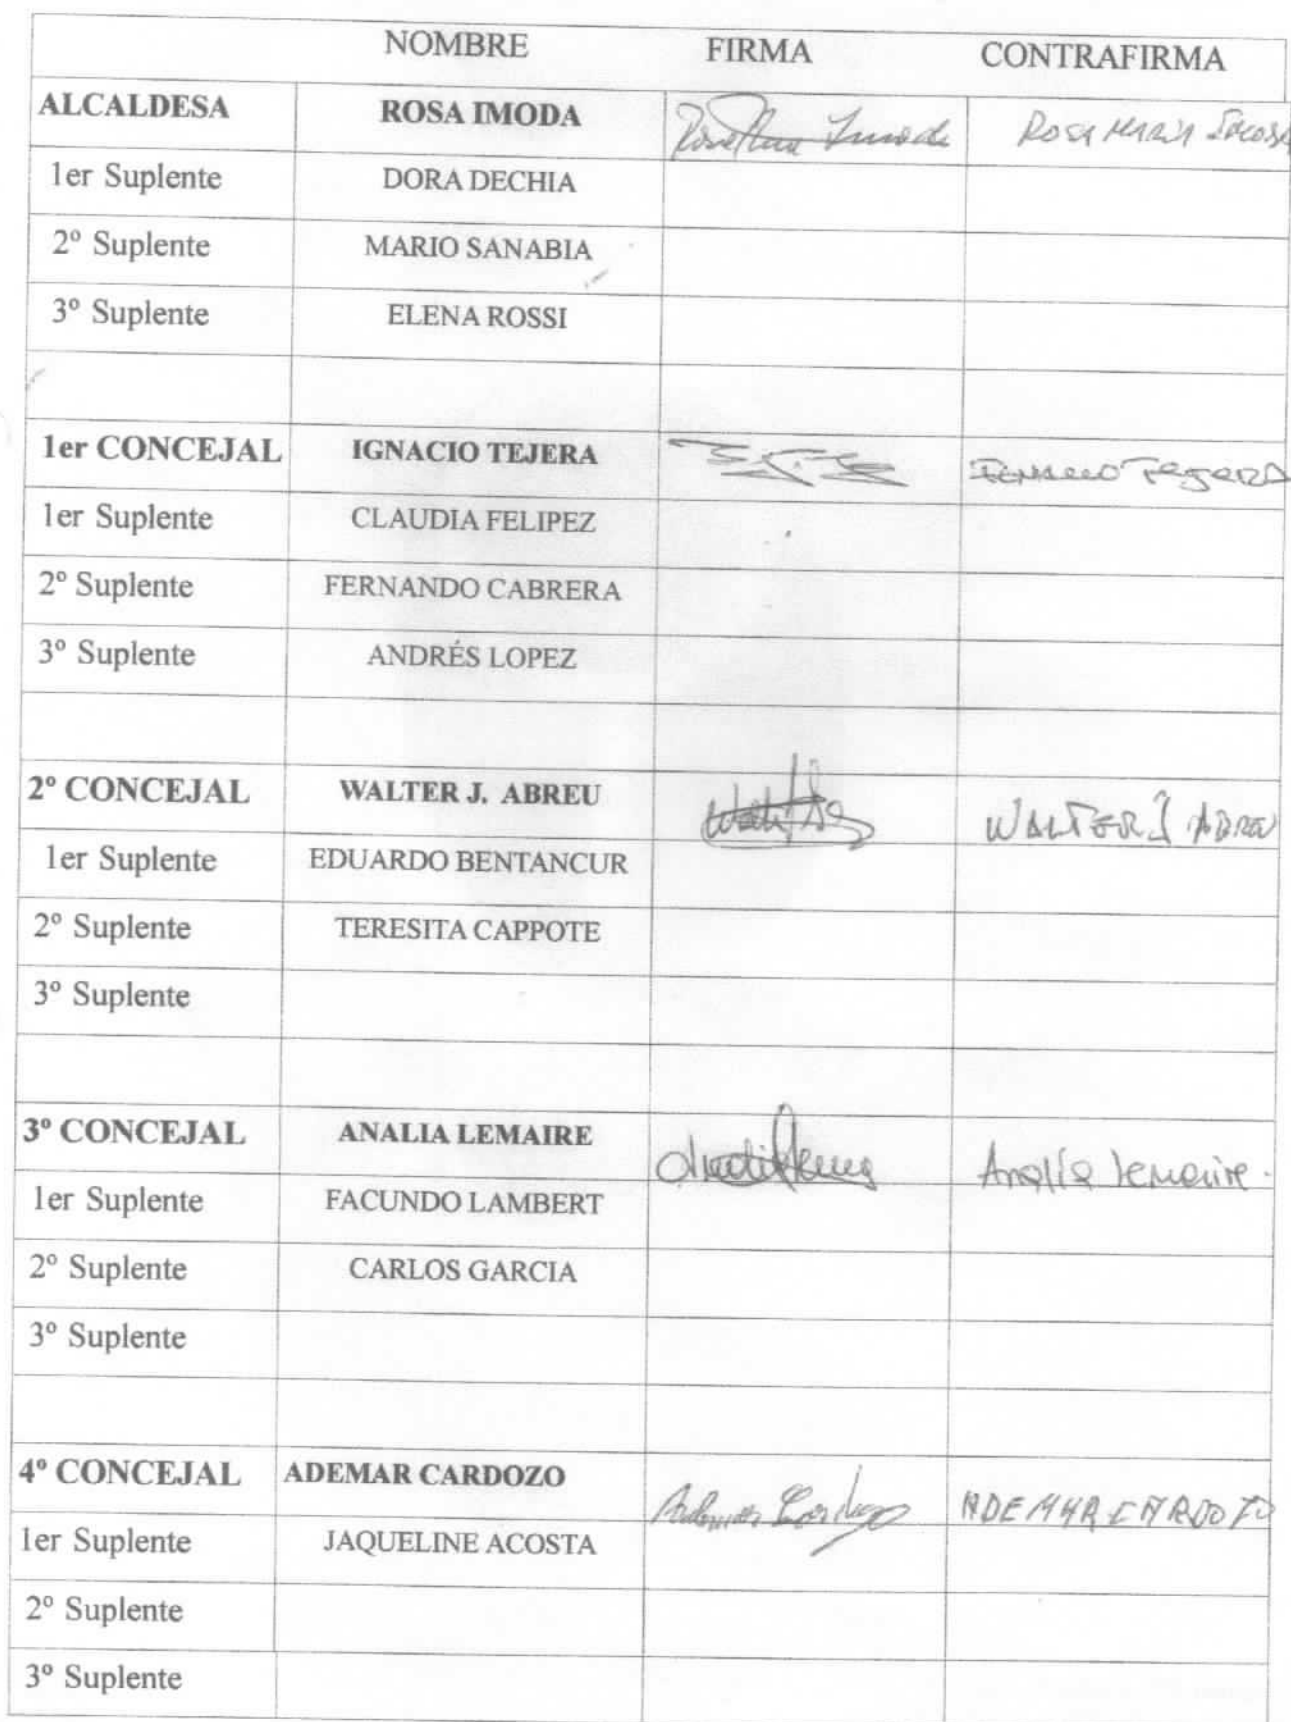 NOMBRE FIRMA CONTRAFIRMA
ALCALDESA ROSA IMODA Rosa Imoda ROSA MARIA
1er Suplente DORA DECHIA
2º Suplente MARIO SANABIA
3º Suplente ELENA ROSSI
1er CONCEJAL IGNACIO TEJERA IGNACIO TEJERA
1er Suplente CLAUDIA FELIPEZ
2º Suplente FERNANDO CABRERA
3º Suplente ANDRÉS LOPEZ
2º CONCEJAL WALTER J. ABREU WALTER J ABREU
1er Suplente EDUARDO BENTANCUR
2º Suplente TERESITA CAPPOTE
3º Suplente
3º CONCEJAL ANALIA LEMAIRE Analía Lemaire.
1er Suplente FACUNDO LAMBERT
2º Suplente CARLOS GARCIA
3º Suplente
4º CONCEJAL ADEMAR CARDOZO Ademar Cardozo ADEMAR CARDOZO
1er Suplente JAQUELINE ACOSTA
2º Suplente
3º Suplente